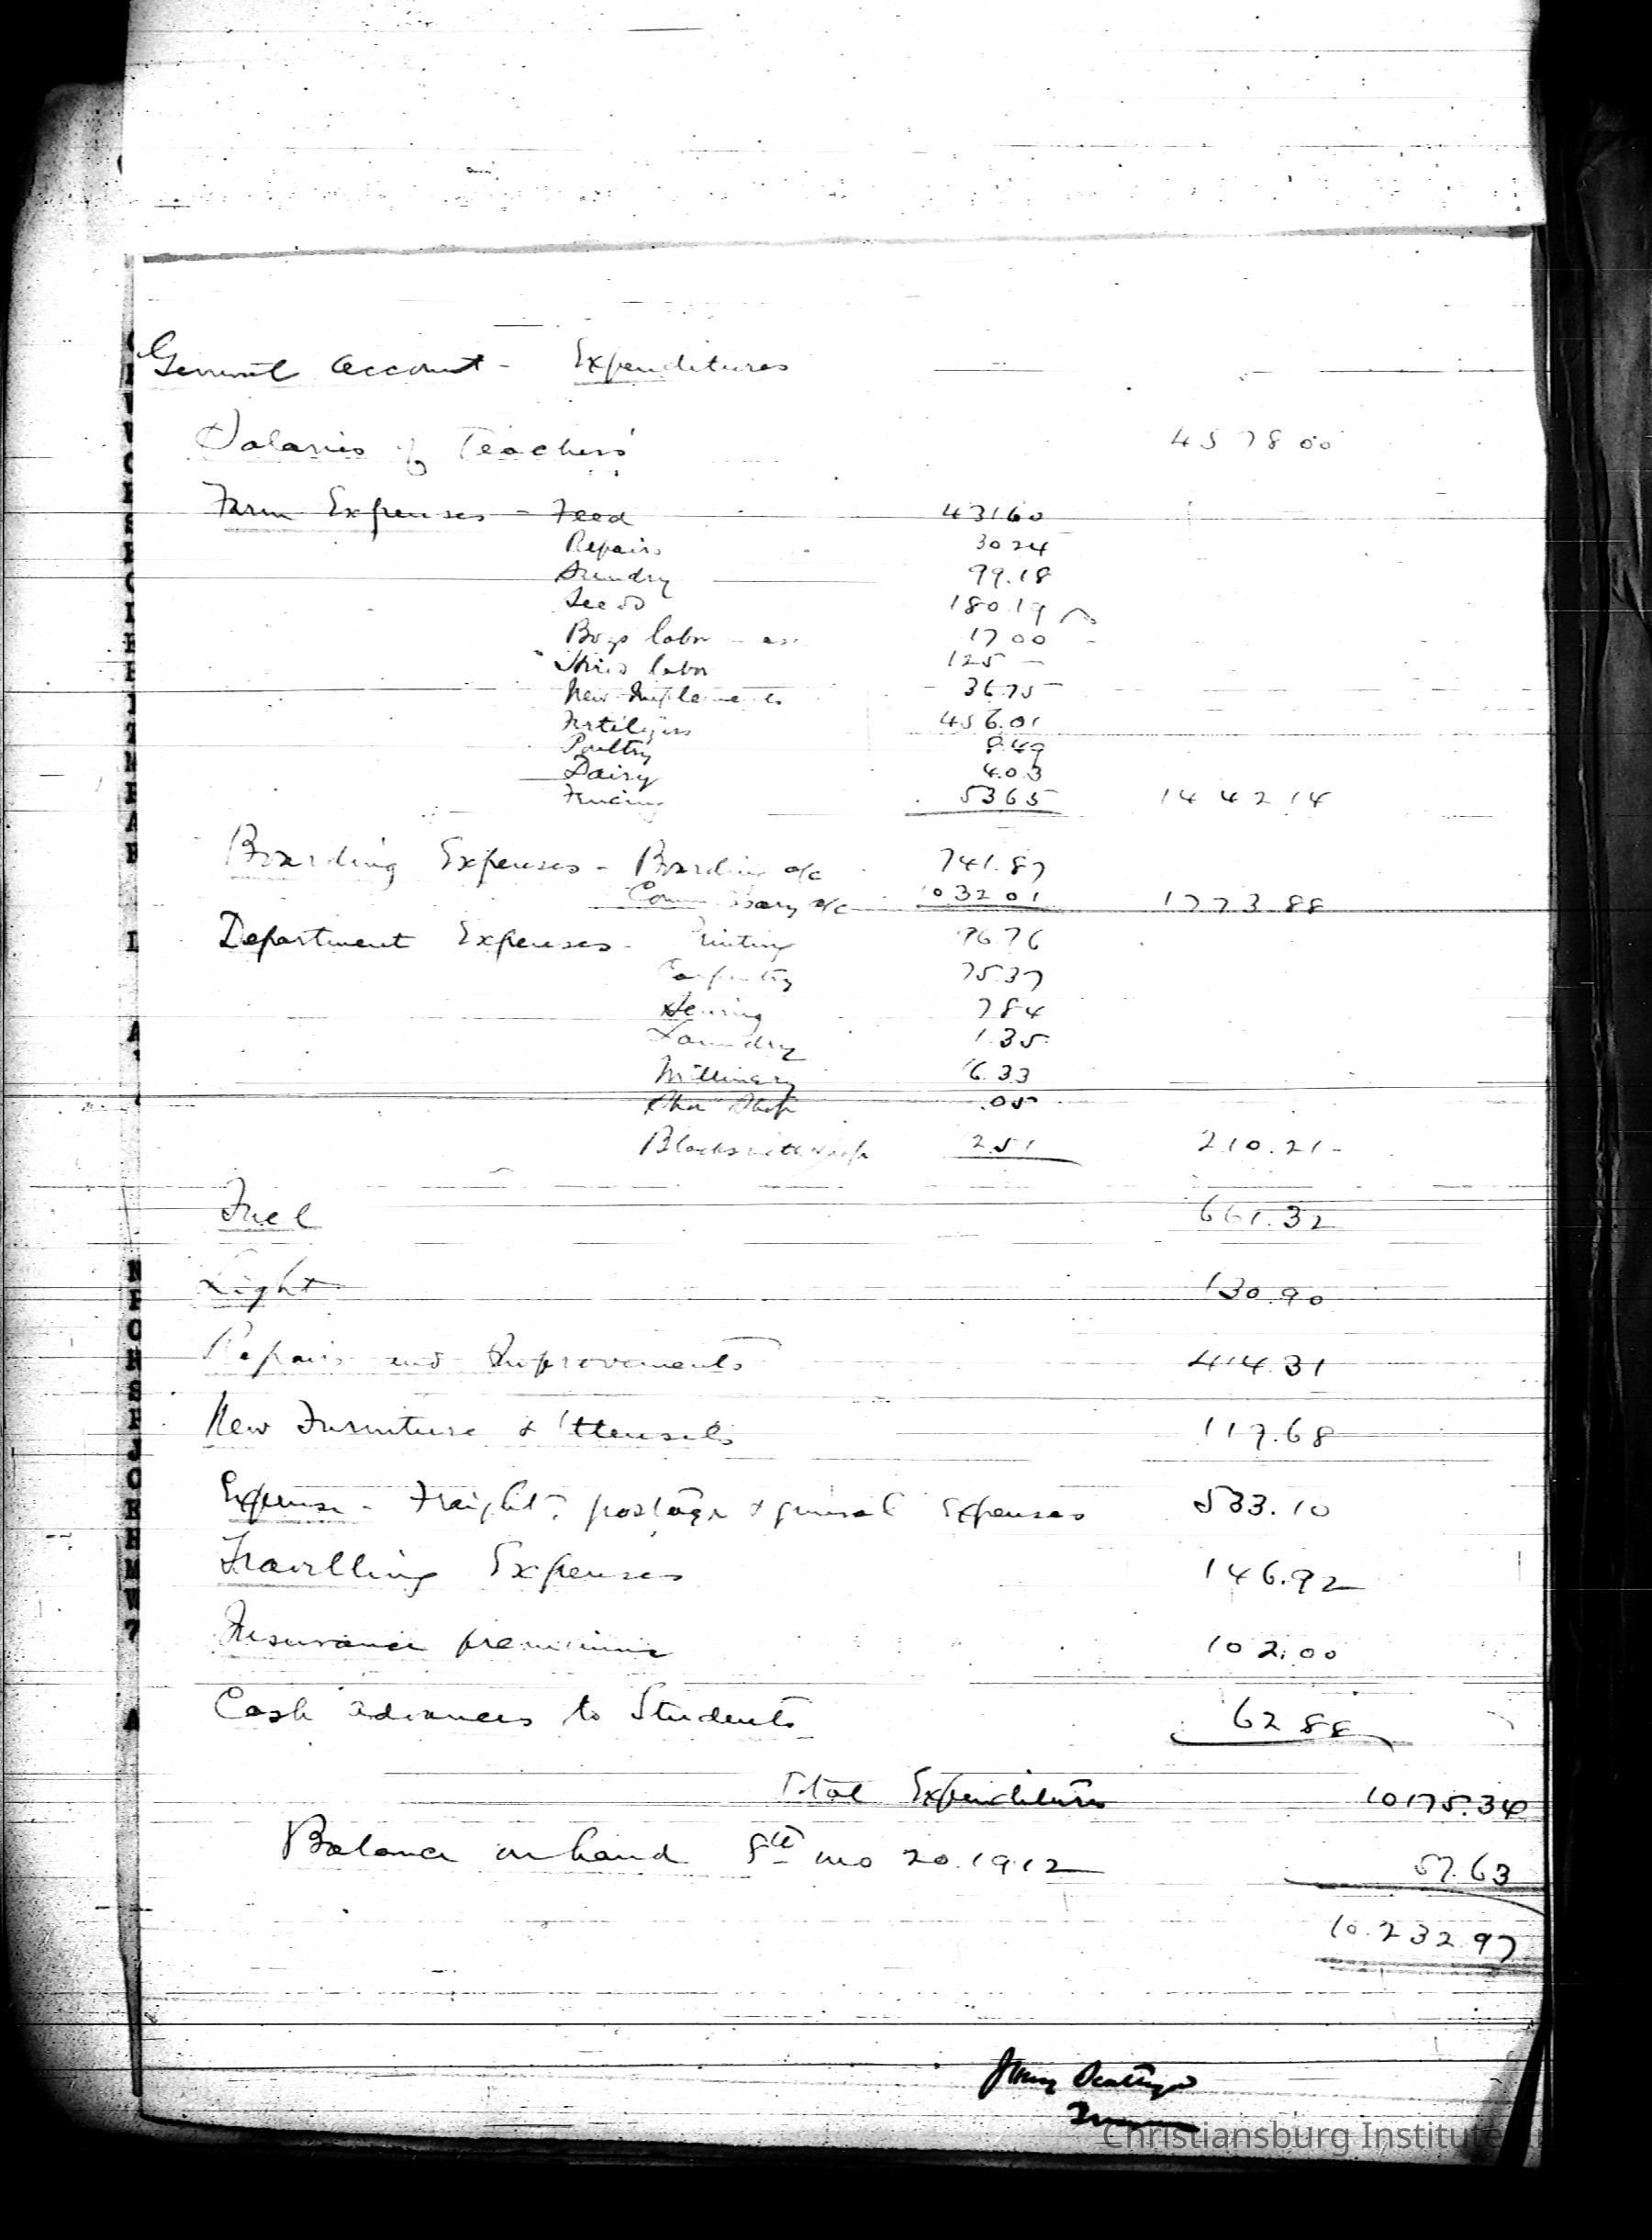 General Account - Expenditures
Salaries of Teachers 4578 00
Farm Expenses - Feed 431 60
Repairs 30 24
Sundry 99.18
Seeds 180.19
Boys labor 17 00
Hired labor 125 -
New Implements 36.75
Fertilizers 456.01
Poultry 8.49
Dairy 4.03
Fencing 53 65 1442 14
Boarding Expenses - Boarding a/c 741.87
Commissary a/c 1032 01 1773.88
Department Expenses - Printing 76
Carpentry 75 37
Sewing 7 84
Laundry 1.35
Millinery 6.33
Shoe Shop .05
Blacksmith Shop 2.51 210.21
Fuel 661.32
Light 130.90
Repairs and Improvements 414.31
New Furniture & Utensils 117.68
Expense - Freight, postage & general Expenses 533.10
Travelling Expenses 146.92
Insurance premiums 102.00
Cash advances to Students 62 88
Total Expenditures 10175.34
Balance on hand 8th mo 20.1912 57.63
10.232.97
Christiansburg Institute